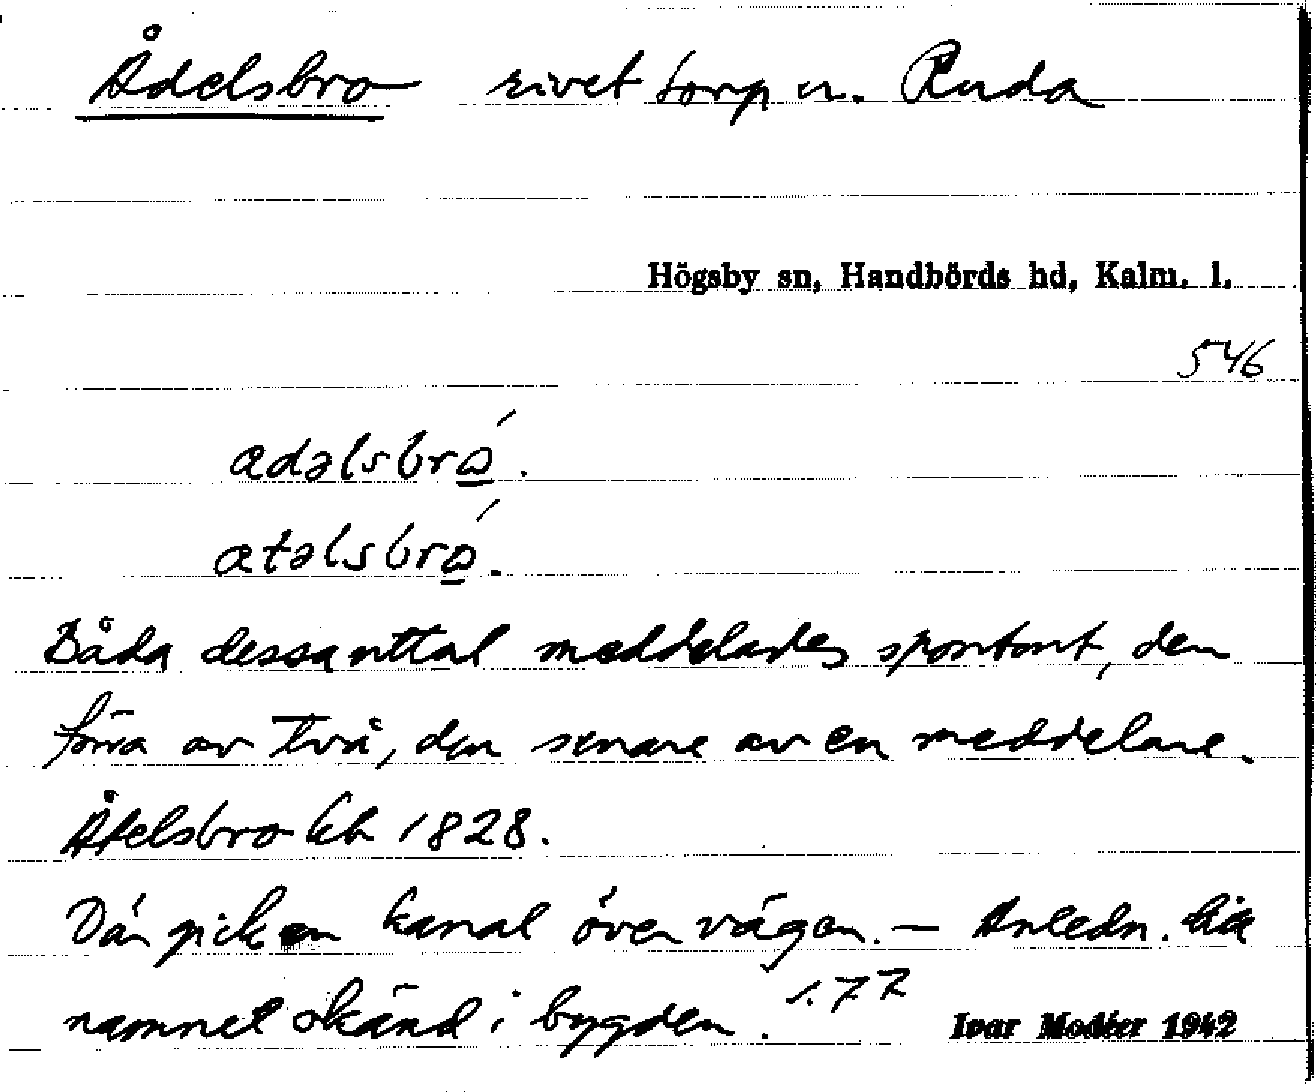 Ådelsbro rivet torp u. Ruda
Högsby sn, Handbörds hd, Kalm. l.
546
adəlsbró.
atəlsbró.
Båda dessa uttal meddelades spontant, den
förra av två, den senare av en meddelare.
Åtelsbro kb 1828.
Där gick en kanal över vägen. — Anledn. till
namnet okänd i bygden. s. 77
Ivar Modéer 1942